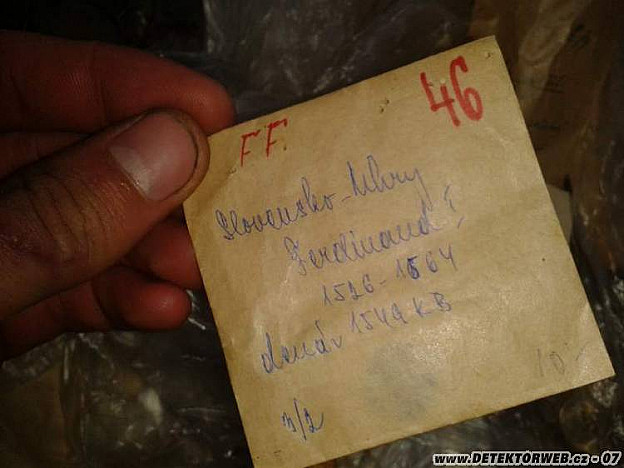 46
FF.
Slovensko-Uhry
Ferdinand I.
1526-1564
denár 1549 KB
3/2
10.-
www.DETEKTORWEB.cz - 07